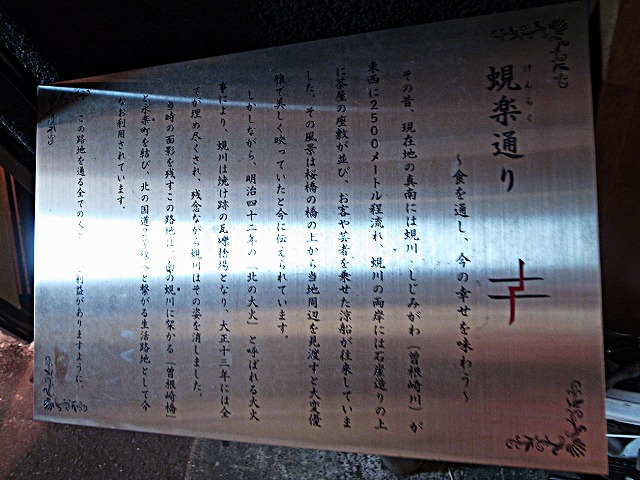 けんらく
蜆楽通り
~食を通し、今の幸せを味わう~
その昔、現在地の真南には蜆川・しじみがわ(曽根崎川)が
東西に2500メートル程流れ、蜆川の両岸には石崖造りの上
に茶屋の座敷が並び、お客や芸者を乗せた涼船が往来していま
した。その風景は桜橋の橋の上から当地周辺を見渡すと大変優
雅で美しく映っていたと今に伝えられています。
しかしながら、明治四十二年の「北の大火」と呼ばれる大火
事により、蜆川は焼け跡の瓦礫捨場となり、大正十三年には全
てが埋め尽くされ、残念ながら蜆川はその姿を消しました。
当時の面影を残すこの路地は、の蜆川に架かる「曽根崎橋」
と永楽町を結び、北の国道2号線へと繋がる生活路地として今
なお利用されています。
この路地を通る全ての人に利益がありますように。